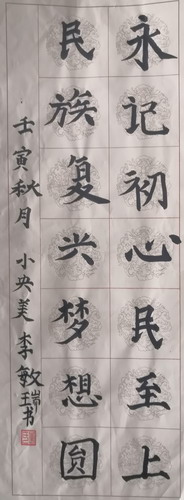 永记初心民至上
民族复兴梦想圆
壬寅秋月 小央美 李敏瑞书